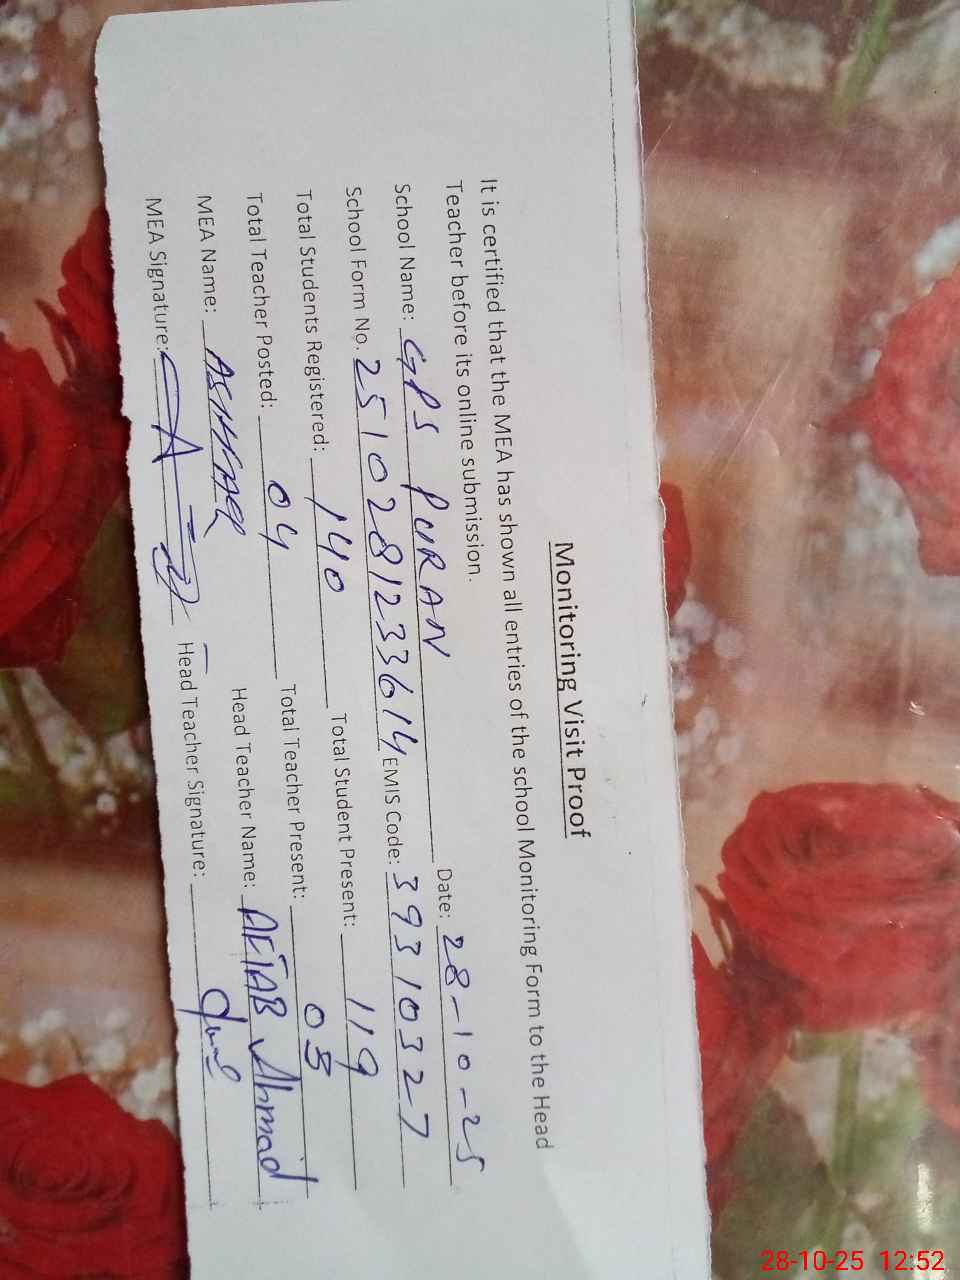 Monitoring Visit Proof
It is certified that the MEA has shown all entries of the school Monitoring Form to the Head
Teacher before its online submission.
School Name: GPS PURAN Date: 28-10-25
School Form No. 2510281233614 EMIS Code: 39310327
Total Students Registered: 140 Total Student Present: 119
Total Teacher Posted: 04 Total Teacher Present: 03
MEA Name: ASHFAQ Head Teacher Name: AFTAB Ahmad
MEA Signature: Head Teacher Signature:
28-10-25 12:52